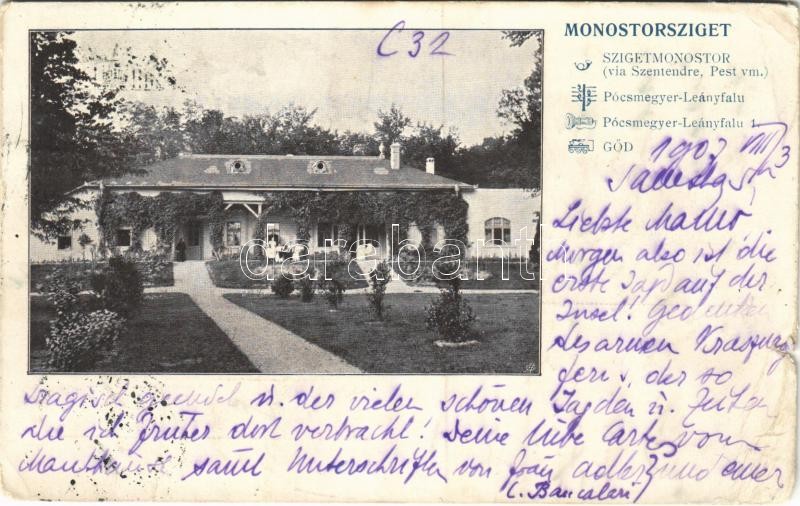 C 32
MONOSTORSZIGET
SZIGETMONOSTOR
(via Szentendre, Pest vm.)
Pócsmegyer-Leányfalu
Pócsmegyer-Leányfalu 1.
GÖD
1907 VIII/3
Samstag
Liebste Mama,
Morgen also ist die
erste Jagd auf der
Insel! Gedenken
des armen
der so
darabanth.com
tragisch endet u. der vielen schönen Jagden u. Zeiten
die ich früher dort verbracht! Deine liebe Carte vom
samt Unterschriften von
C. Bancalari